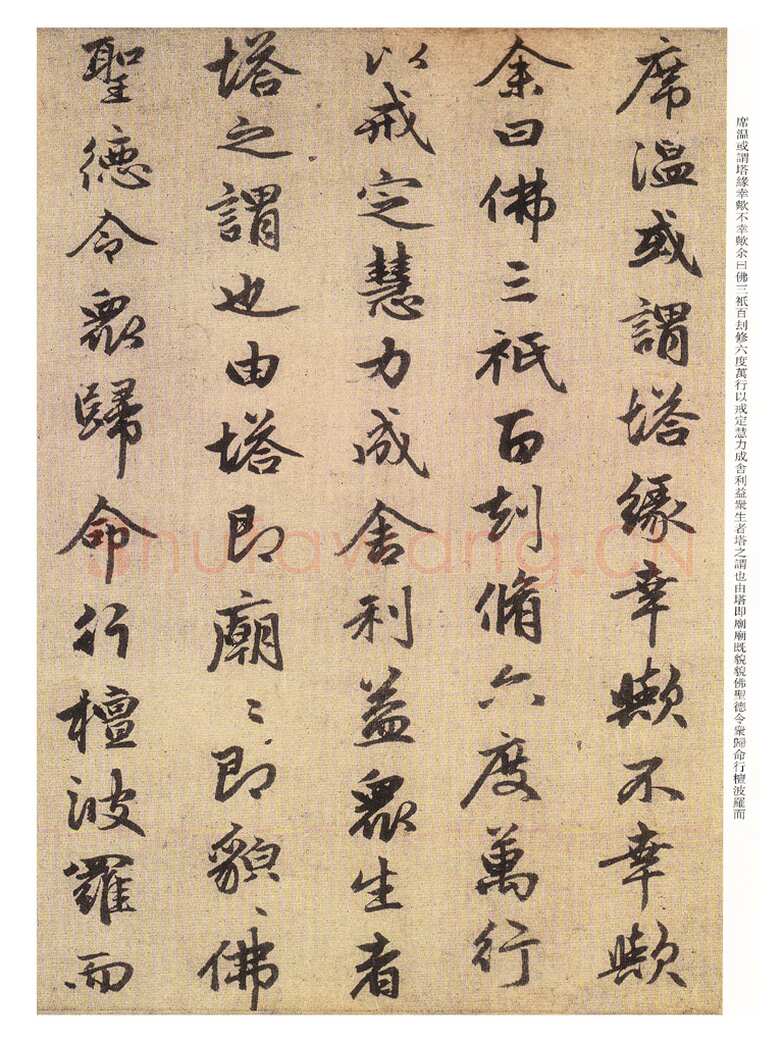 席温或謂塔緣幸歟不幸歟
余曰佛三祇百刦脩六度萬行
以戒定慧力成舍利益衆生者
塔之謂也由塔即廟〻即貌〻佛
聖德令衆歸命行檀波羅而
席温或謂塔緣幸歟不幸歟余曰佛三祇百刦修六度萬行以戒定慧力成舍利益衆生者塔之謂也由塔即廟廟既貌貌佛聖德令衆歸命行檀波羅而
Shufawang.CN